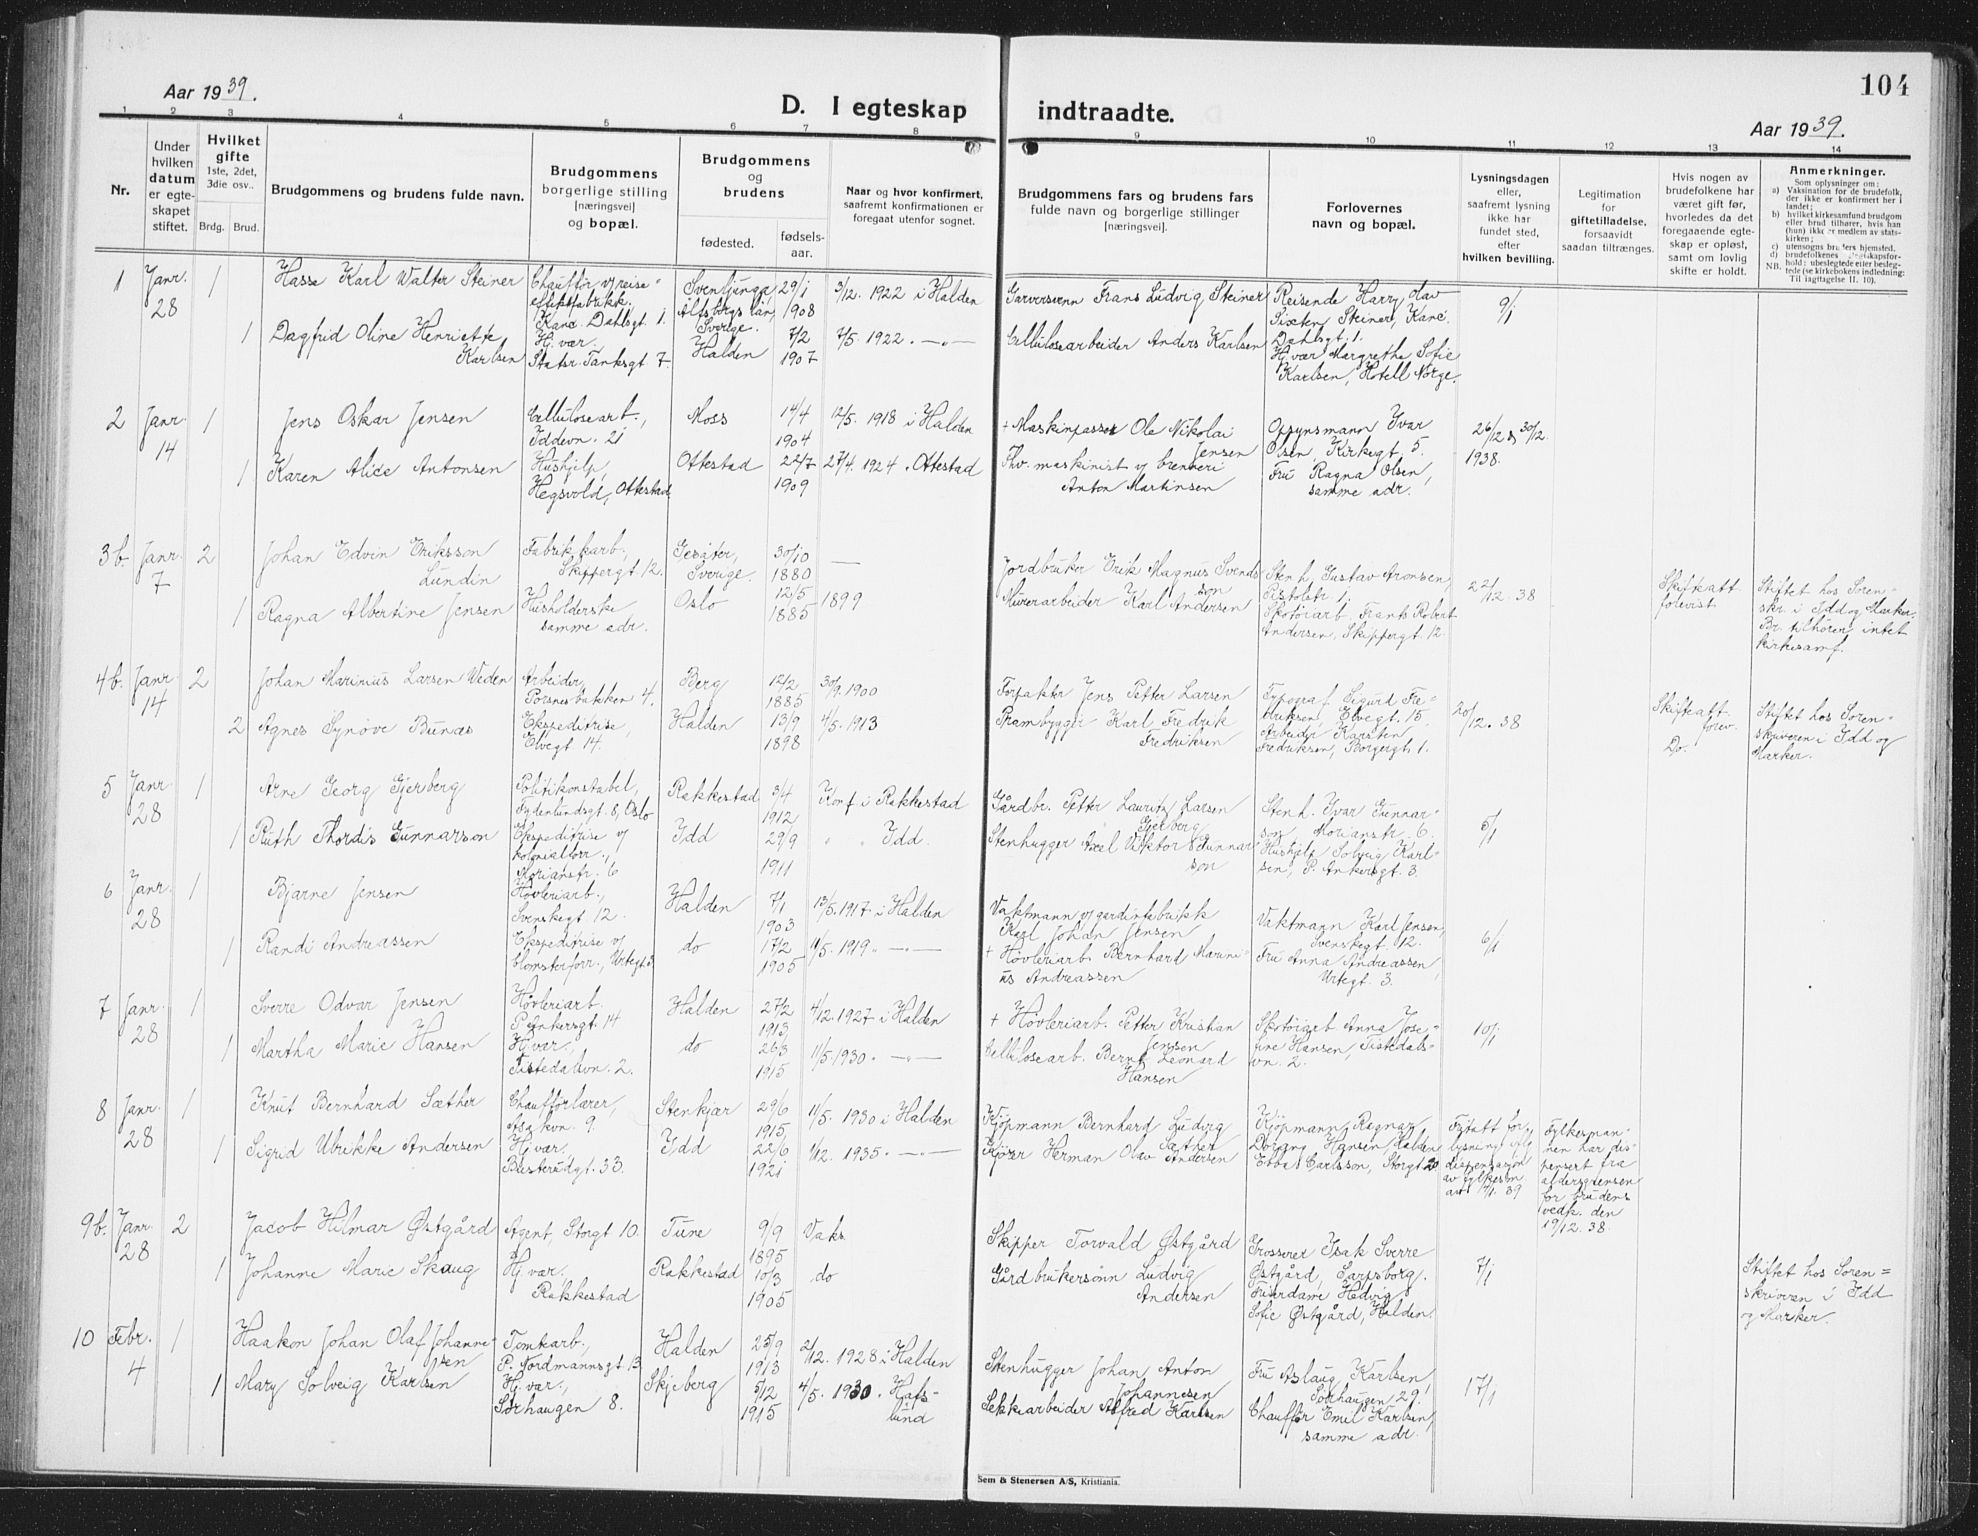 Aar 1939.
D. I egteskap indtraadte.
104
Aar 1939.
1 2 3 4 5 6 7 8 9 10 11 12 13 14
Nr.
Under hvilken datum er egteskapet stiftet.
Hvilket gifte 1ste, 2det, 3die osv..
Brdg. Brud.
Brudgommens og brudens fulde navn.
Brudgommens borgerlige stilling [næringsvei] og bopæl.
Brudgommens og brudens
fødested. fødselsaar.
Naar og hvor konfirmert, saafremt konfirmationen er foregaat utenfor sognet.
Brudgommens fars og brudens fars fulde navn og borgerlige stillinger [næringsvei].
Forlovernes navn og bopæl.
Lysningsdagen eller, saafremt lysning ikke har fundet sted, efter hvilken bevilling.
Legitimation for giftetilladelse, forsaavidt saadan tiltrænges.
Hvis nogen av brudefolkene har været gift før, hvorledes da det foregaaende egteskap er opløst, samt om lovlig skifte er holdt.
Anmerkninger.
Som oplysninger om:
a) Vaksination for de brudefolk, der ikke er konfirmert her i landet;
b) hvilket kirkesamfund brudgom eller brud tilhører, hvis han (hun) ikke er medlem av statskirken;
c) utensogns bruders hjemsted.
d) brudefolkenes slegtskapsforhold: ubeslegtede eller beslegtede (se kirkebokens indledning: Til iagttagelse II. 10).
NB.
1 Janr. 28 1 Hasse Karl Walter Steiner Chauffør v/reiseeffektfabrikk. Kand. Dahlsgt. 1. Svenljunga, Älfsborgs län, Sverige. 29/1 1908 3/12. 1922 i Halden Garversvenn Frans Ludvig Steiner Reisende Harry Olav Sixten Steiner, Kand. Dahlsgt. 1. 9/1
1 Dagfrid Oline Henriette Karlsen Hj.vær. Statsr. Tanksgt 7. Halden 7/2 1907 7/5. 1922. —"— Cellulosearbeider Anders Karlsen Hj.vær Margrethe Sofie Karlsen, Hotell Norge.
2 Janr. 14 1 Jens Oskar Jensen Cellulosearb., Iddevn. 21 Moss 14/4 1904 12/5. 1918 i Halden + Maskinpasser Ole Nikolai Jensen Opsynsmann Ivar Olsen, Kirkegt. 5. 26/12 & 30/12. 1938.
1 Karen Alice Antonsen Hushjelp, Hegsvold, Ottestad Ottestad 22/7 1909 27/4. 1924 . Ottestad Fhv. maskinist v/ brenneri Anton Martinsen Fru Ragna Olsen, samme adr.
3b. Janr. 7 2 Johan Edvin Eriksson Lundin Fabrikkarb., Skippergt 12. Gesäter, Sverige. 30/10 1880 — Jordbruker Erik Magnus Svendsson Stenh. Gustav Aronsen, Pistolstr. 1. 22/12. 38 Skifteatt. forevist. Stiftet hos Sorenskr. i Idd og Marker. Br. tilhører intet kirkesamf.
1 Ragna Albertine Jensen Husholderske samme adr. Oslo 12/5 1885 1899 Murerarbeider Karl Andersen Skotøiarb. Frants Robert Andersen, Skippergt. 12.
4b. Janr 14 2 Johan Marinius Larsen Veden Arbeider, Porsnesbakken 4. Berg 12/2 1885 30/9. 1900 Forpakter Jens Petter Larsen Typograf Sigurd Fredriksen, Elvegt. 15. 20/12. 38 Skifteatt. forev. Stiftet hos Sorenskriveren i Idd og Marker.
2 Agnes Synøve Bunæs Ekspeditrise, Elvegt 14. Halden 13/9 1898 4/5. 1913 Prambygger Karl Fredrik Fredriksen Arbeider Karsten Fredriksen, Borgergt. 1. Do.
5 Janr. 28 1 Arne Georg Gjerberg Politikonstabel, Fydenlundsgt. 8, Oslo Rakkestad 3/4 1912 Konf. i Rakkestad Gårdbr. Petter Lauritz Larsen Gjerberg Stenh. Ivar Gunnarson, Morianstr. 6. 5/1
1 Ruth Thordis Gunnarson Ekspeditrise v/ kolonialforr., Morianstr. 6 Idd 29/9 1911 " " Idd. Stenhugger Axel Viktor Gunnarson Hushjelp Solveig Karlsen, P. Ankersgt. 3.
6 Janr. 28 1 Bjarne Jensen Høvleriarb., Svenskegt. 12. Halden 7/1 1903 13/5. 1917 i Halden Vaktmann v/ gardinfabrikk Karl Johan Jensen Vaktmann Karl Jensen, Svenskegt. 12. 6/1
1 Randi Andreassen Ekspeditrise v/ blomsterforr., Urtegt 3. do 17/2 1905 11/5. 1919. —"— + Høvleriarb. Bernhard Marinius Andreassen Fru Anna Andreassen, Urtegt. 3.
7 Janr. 28 1 Sverre Odvar Jensen Høvleriarb. P. Ankersgt. 14 Halden 27/2 1913 4/12. 1927 i Halden + Høvleriarb. Petter Kristian Jensen Skotøiarb Anna Josefine Hansen, Tistedalsvn. 2. 10/1
1 Martha Marie Hansen Hj.vær., Tistedalsvn. 2. do 26/3 1915 11/5. 1930. —"— Cellulosearb. Bernt Leonard Hansen
8 Janr. 28 1 Knut Bernhard Sæther Chaufførlærer, Asakvn. 9. Stenkjær 29/6 1915 11/5. 1930 i Halden Kjøpmann Bernhard Ludvig Sæther Kjøpmann Ragnar Dørgang Hansen, Halden Fritatt for lysning iflg. dispensasjon av fylkesm. av 17/1. 39 Fylkesmannen har dispensert fra aldersgrensen for brudens vedk. den 19/12. 38.
1 Sigrid Ulrikke Andersen Hj.vær. Busterudgt. 33. Idd 22/6 1921 1/12. 1935. —"— Kjører Herman Olav Andersen Ebba Carlsson, Storgt. 20
9b. Janr. 28 2 Jacob Hilmar Østgård Agent Storgt 10. Tune 9/9 1895 Vaks. Skipper Torvald Østgård Grosserer Isak Sverre Østgård, Sarpsborg. 7/1 Stiftet hos Sorenskriveren i Idd og Marker.
1 Johanne Marie Skaug Hj.vær. Rakkestad Rakkestad 10/3 1905 do Gårdbrukersønn Ludvig Andersen Fruardame Hedvig Sofie Østgård, Halden.
10 Febr. 4 1 Haakon Johan Olaf Johannesen Tomtearb., P. Nordmannsgt. 13. Halden 25/9 1913 2/12. 1928 i Halden Stenhugger Johan Anton Johannesen Fru Aslaug Karlsen Sørhaugen 29. 17/1
1 Mary Solveig Karlsen Hj.vær., Sørhaugen 8. Skjeberg 5/12 1915 4/5. 1930. Hafslund Sekkearbeider Alfred Karlsen Chauffør Emil Karlsen, samme adr.
Sem & Stenersen A/S, Kristiania.